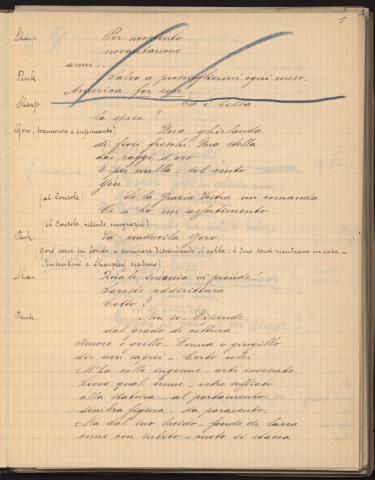 5
Sharp. Per novecento
novantanove
anni...
Pink. Salvo a prosciogliermi ogni mese.
America for ever.
Sharp. Ed è bella
la sposa?
Goro (premuroso e insinuante) Una ghirlanda
di fiori freschi. Una stella
dai raggi d'oro
E per nulla: sol cento
Yen.
(al Console) Se la Grazia Vostra mi comanda
Ce n'ho un assortimento
(il Console, ridendo, ringrazia)
Pink. Va - conducila Goro
(Goro corre in fondo e scompare discendendo il colle: i due servi rientrano in casa -
Pinkerton e Sharpless siedono)
Shar. Quale smania vi prende!
Sareste addirittura
Cotto?
Pink. Non so. Dipende
dal grado di cottura
Amore o grillo - Donna o gingillo
dir non saprei - Certo colei
M'ha colle ingenue - arti invescato.
Lieve qual tenue - vetro soffiato
alla statura - al portamento
sembra figura - da paravento.
Ma dal suo lucido - fondo di lacca
come con subito - moto si stacca